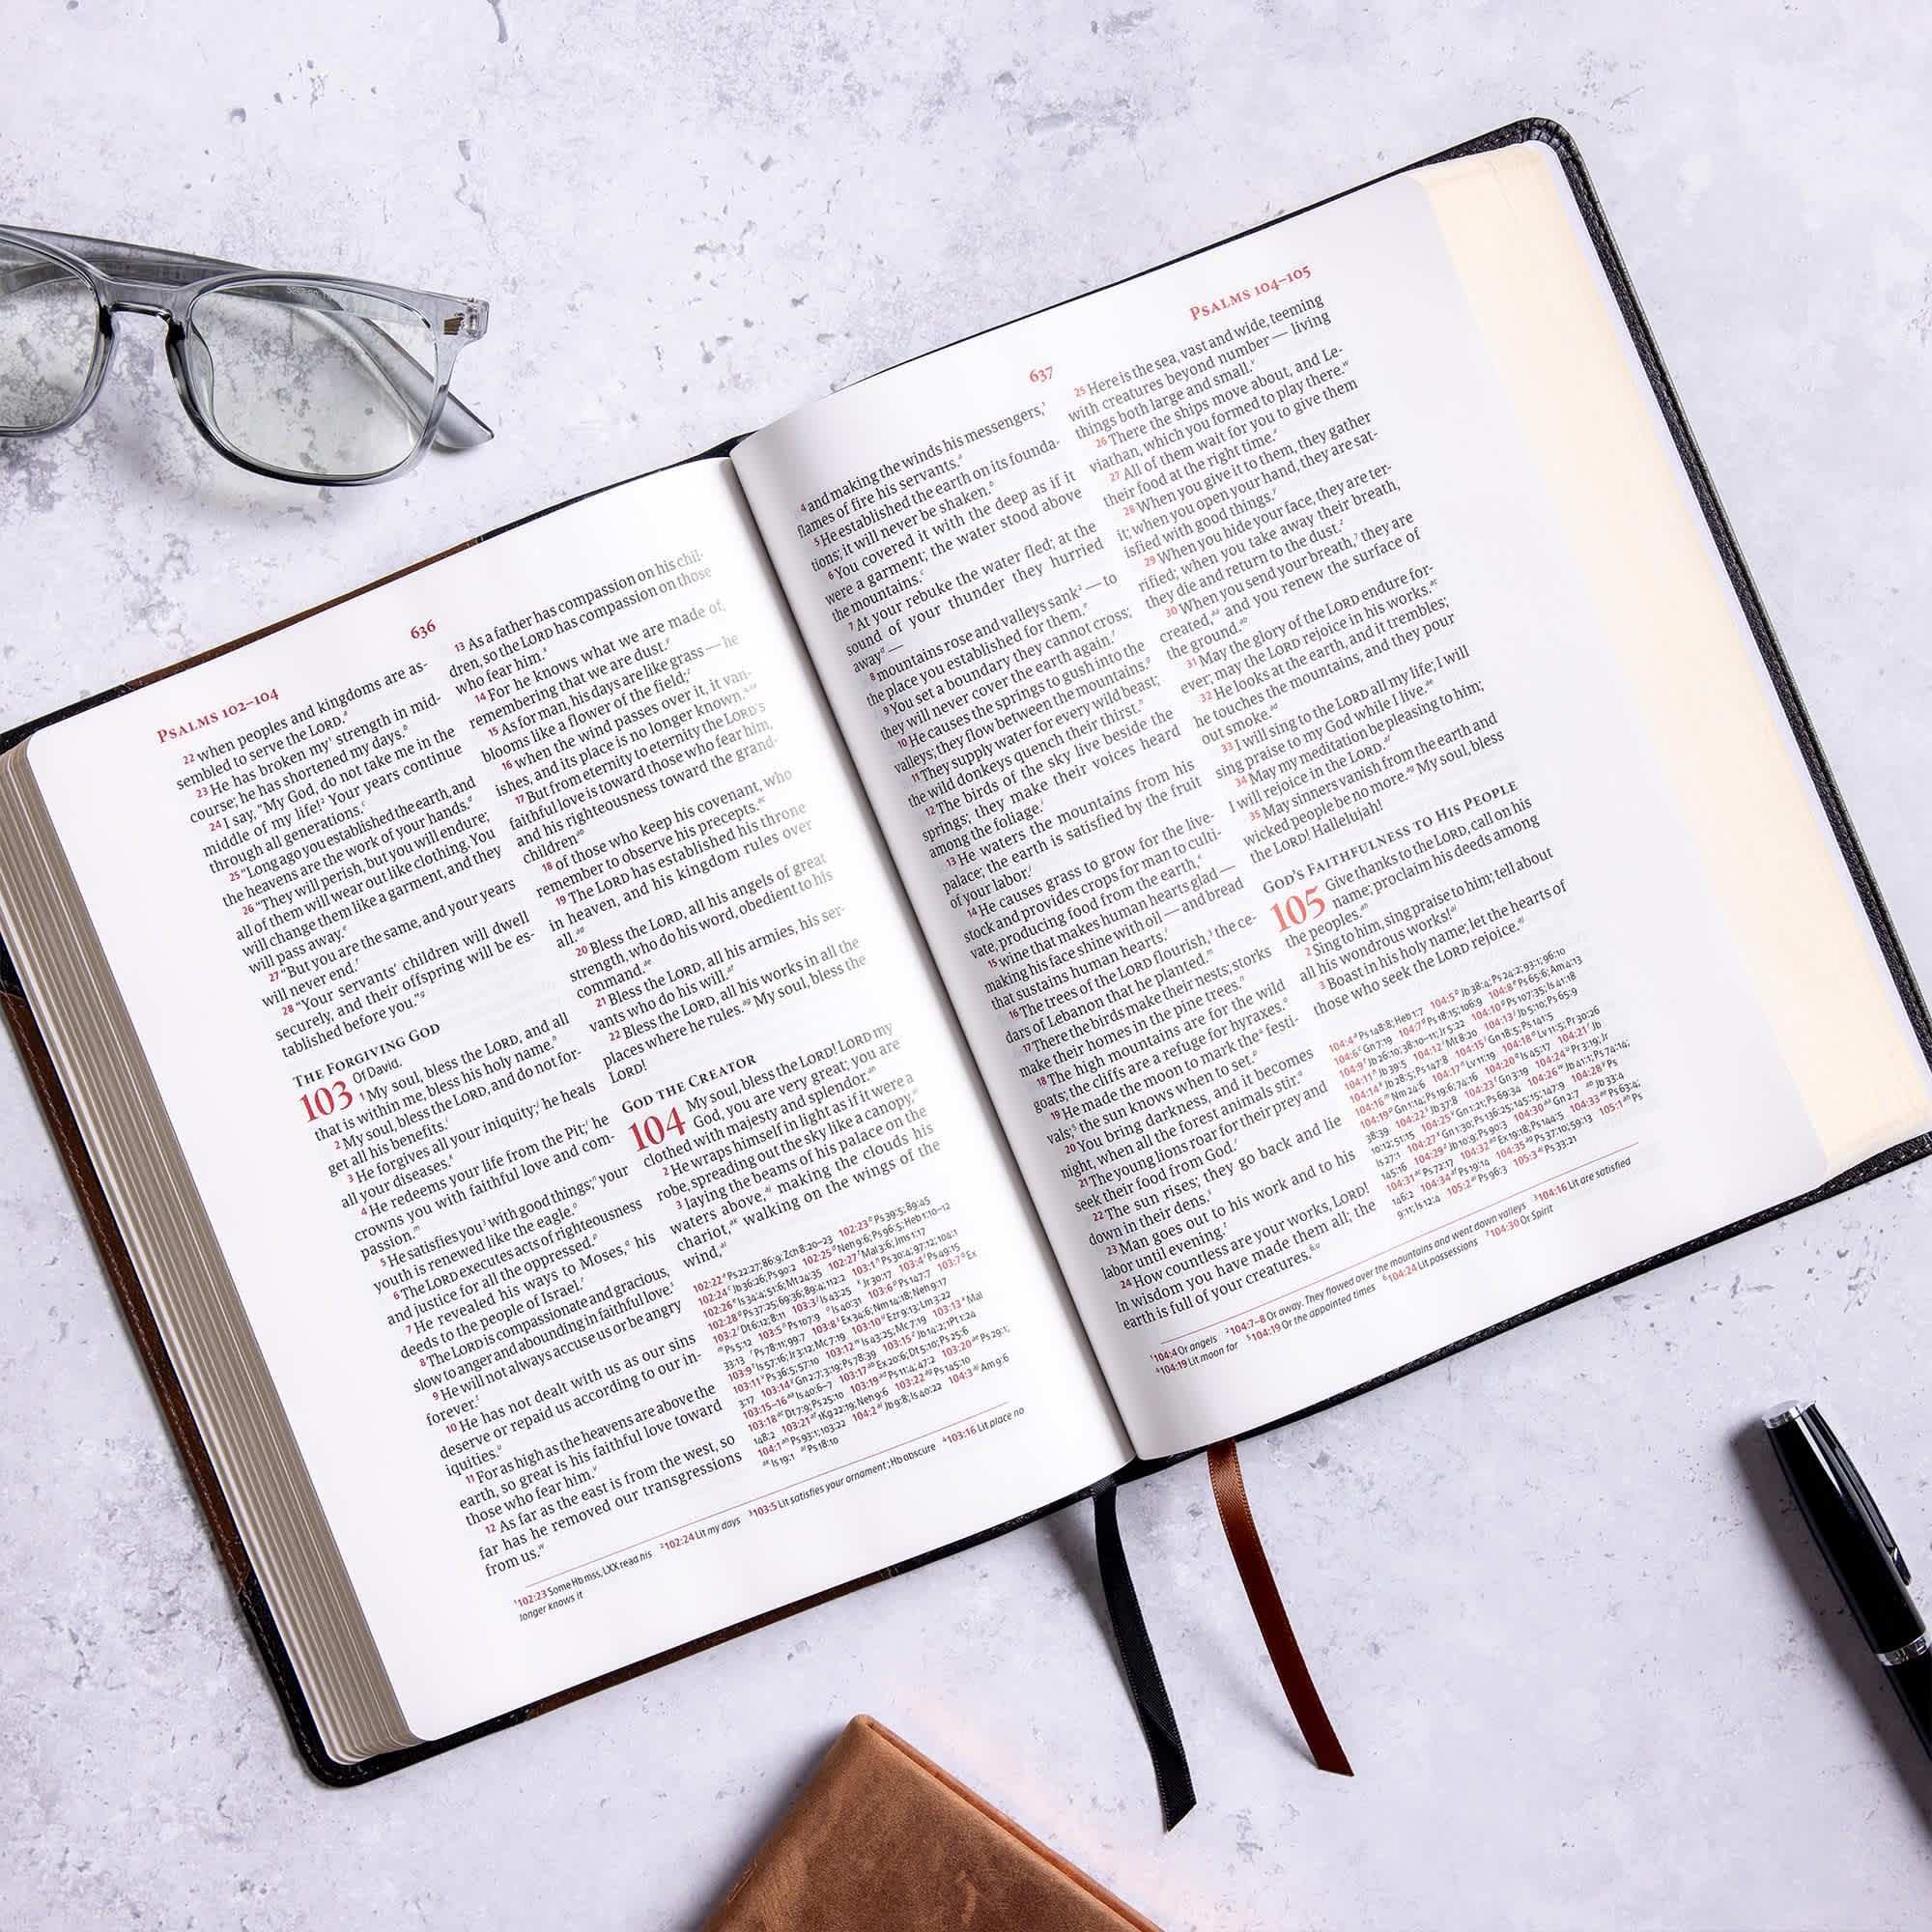 PSALMS 102–104
636
22 when peoples and kingdoms are as-
sembled to serve the LORD.
23 He has broken my¹ strength in mid-
course; he has shortened my days.
24 I say, "My God, do not take me in the
middle of my life!² Your years continue
through all generations.
25 "Long ago you established the earth, and
the heavens are the work of your hands.
26 "They will perish, but you will endure;
all of them will wear out like clothing. You
will change them like a garment, and they
will pass away.
27 "But you are the same, and your years
will never end.
28 "Your servants' children will dwell
securely, and their offspring will be es-
tablished before you."
THE FORGIVING GOD
103 Of David.
1 My soul, bless the LORD, and all
that is within me, bless his holy name.
2 My soul, bless the LORD, and do not for-
get all his benefits.
3 He forgives all your iniquity; he heals
all your diseases.
4 He redeems your life from the Pit; he
crowns you with faithful love and com-
passion.
5 He satisfies you³ with good things; your
youth is renewed like the eagle.
6 The LORD executes acts of righteousness
and justice for all the oppressed.
7 He revealed his ways to Moses, his
deeds to the people of Israel.
8 The LORD is compassionate and gracious,
slow to anger and abounding in faithful love.
9 He will not always accuse us or be angry
forever.
10 He has not dealt with us as our sins
deserve or repaid us according to our in-
iquities.
11 For as high as the heavens are above the
earth, so great is his faithful love toward
those who fear him.
12 As far as the east is from the west, so
far has he removed our transgressions
from us.
13 As a father has compassion on his chil-
dren, so the LORD has compassion on those
who fear him.
14 For he knows what we are made of,
remembering that we are dust.
15 As for man, his days are like grass — he
blooms like a flower of the field;
16 when the wind passes over it, it van-
ishes, and its place is no longer known.
17 But from eternity to eternity the LORD's
faithful love is toward those who fear him,
and his righteousness toward the grand-
children
18 of those who keep his covenant, who
remember to observe his precepts.
19 The LORD has established his throne
in heaven, and his kingdom rules over
all.
20 Bless the LORD, all his angels of great
strength, who do his word, obedient to his
command.
21 Bless the LORD, all his armies, his ser-
vants who do his will.
22 Bless the LORD, all his works in all the
places where he rules. My soul, bless the
LORD!
GOD THE CREATOR
104 My soul, bless the LORD! LORD my
God, you are very great; you are
clothed with majesty and splendor.
2 He wraps himself in light as if it were a
robe, spreading out the sky like a canopy,
3 laying the beams of his palace on the
waters above, making the clouds his
chariot, walking on the wings of the
wind,
¹102:23 Some Hb mss, LXX read his ²102:24 Lit my days ³103:5 Lit satisfies your ornament; Hb obscure ⁴103:16 Lit place no
longer knows it
637
PSALMS 104–105
4 and making the winds his messengers,¹
flames of fire his servants.
5 He established the earth on its founda-
tions; it will never be shaken.
6 You covered it with the deep as if it
were a garment; the water stood above
the mountains.
7 At your rebuke the water fled; at the
sound of your thunder they hurried
away —
8 mountains rose and valleys sank² — to
the place you established for them.
9 You set a boundary they cannot cross;
they will never cover the earth again.
10 He causes the springs to gush into the
valleys; they flow between the mountains.
11 They supply water for every wild beast;
the wild donkeys quench their thirst.
12 The birds of the sky live beside the
springs; they make their voices heard
among the foliage.
13 He waters the mountains from his
palace; the earth is satisfied by the fruit
of your labor.
14 He causes grass to grow for the live-
stock and provides crops for man to culti-
vate, producing food from the earth,
15 wine that makes human hearts glad —
making his face shine with oil — and bread
that sustains human hearts.
16 The trees of the LORD flourish,³ the ce-
dars of Lebanon that he planted.
17 There the birds make their nests; storks
make their homes in the pine trees.
18 The high mountains are for the wild
goats; the cliffs are a refuge for hyraxes.
19 He made the moon to mark the⁴ festi-
vals;⁵ the sun knows when to set.
20 You bring darkness, and it becomes
night, when all the forest animals stir.
21 The young lions roar for their prey and
seek their food from God.
22 The sun rises; they go back and lie
down in their dens.
23 Man goes out to his work and to his
labor until evening.
24 How countless are your works, LORD!
In wisdom you have made them all; the
earth is full of your creatures.⁶
25 Here is the sea, vast and wide, teeming
with creatures beyond number — living
things both large and small.
26 There the ships move about, and Le-
viathan, which you formed to play there.
27 All of them wait for you to give them
their food at the right time.
28 When you give it to them, they gather
it; when you open your hand, they are sat-
isfied with good things.
29 When you hide your face, they are ter-
rified; when you take away their breath,
they die and return to the dust.
30 When you send your breath,⁷ they are
created, and you renew the surface of
the ground.
31 May the glory of the LORD endure for-
ever; may the LORD rejoice in his works.
32 He looks at the earth, and it trembles;
he touches the mountains, and they pour
out smoke.
33 I will sing to the LORD all my life; I will
sing praise to my God while I live.
34 May my meditation be pleasing to him;
I will rejoice in the LORD.
35 May sinners vanish from the earth and
wicked people be no more. My soul, bless
the LORD! Hallelujah!
GOD'S FAITHFULNESS TO HIS PEOPLE
105 Give thanks to the LORD, call on his
name; proclaim his deeds among
the peoples.
2 Sing to him, sing praise to him; tell about
all his wondrous works!
3 Boast in his holy name; let the hearts of
those who seek the LORD rejoice.
¹104:4 Or angels ²104:7–8 Or away. They flowed over the mountains and went down valleys ³104:16 Lit are satisfied
⁴104:19 Lit moon for ⁵104:19 Or the appointed times ⁶104:24 Lit possessions ⁷104:30 Or Spirit